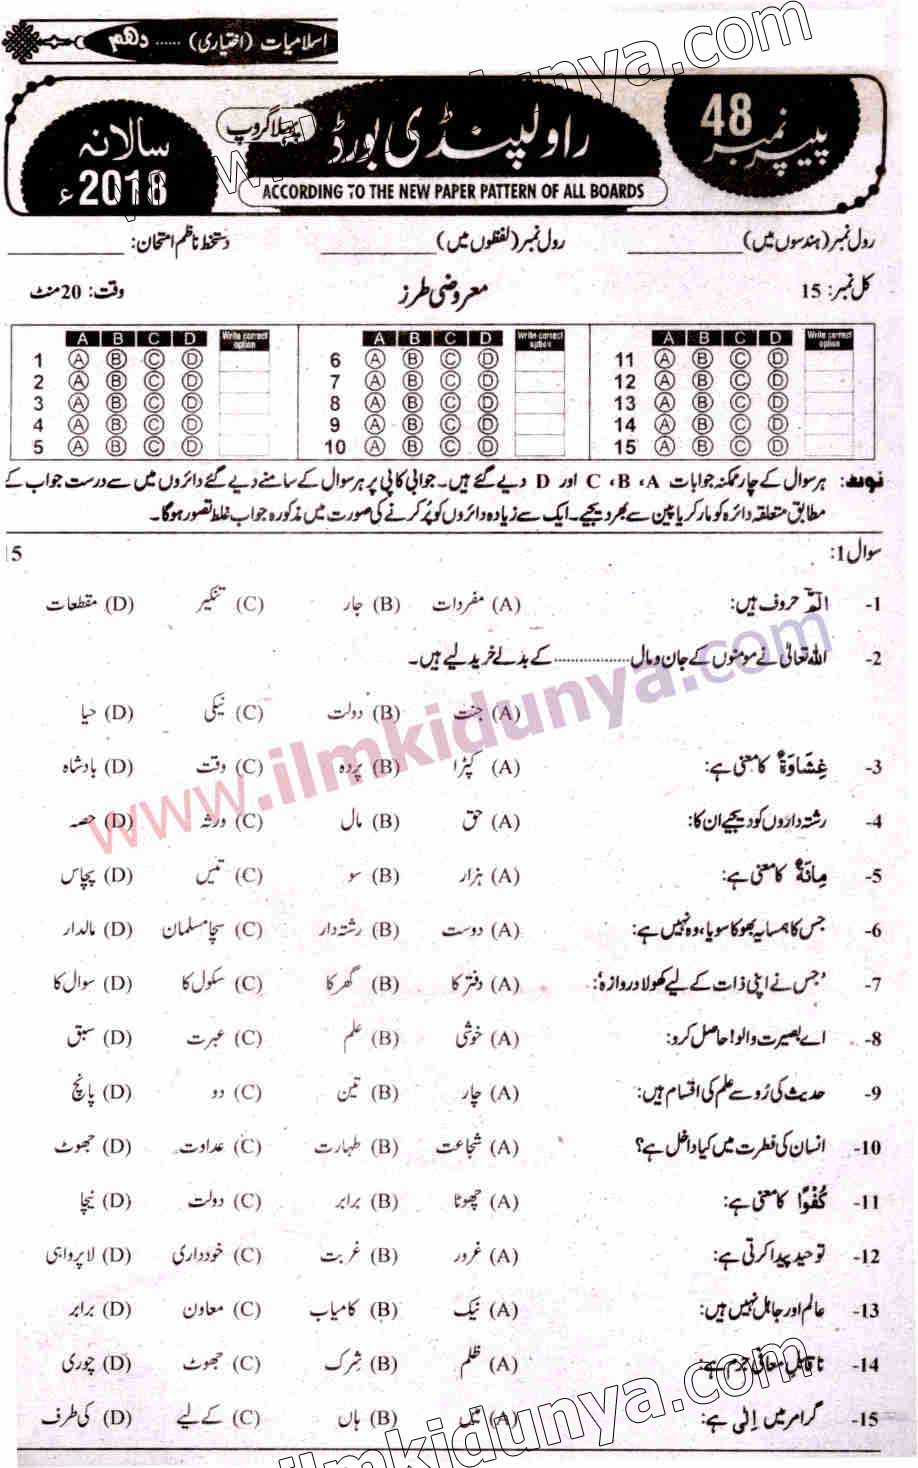 اسلامیات (اختیاری) ...... دھم
پیپر نمبر 48
راولپنڈی بورڈ
پہلا گروپ
سالانہ 2018ء
ACCORDING TO THE NEW PAPER PATTERN OF ALL BOARDS
رول نمبر (ہندسوں میں) __________ رول نمبر (لفظوں میں) __________ دستخط ناظم امتحان: __________
کل نمبر: 15 معروضی طرز وقت: 20 منٹ
A B C D Write correct option A B C D Write correct option A B C D Write correct option
1 A B C D 6 A B C D 11 A B C D
2 A B C D 7 A B C D 12 A B C D
3 A B C D 8 A B C D 13 A B C D
4 A B C D 9 A B C D 14 A B C D
5 A B C D 10 A B C D 15 A B C D
نوٹ: ہر سوال کے چار ممکنہ جوابات A، B، C اور D دیے گئے ہیں۔ جوابی کاپی پر ہر سوال کے سامنے دیے گئے دائروں میں سے درست جواب کے
مطابق متعلقہ دائرہ کو مارکر یا پین سے بھر دیجیے۔ ایک سے زیادہ دائروں کو پُر کرنے کی صورت میں مذکورہ جواب غلط تصور ہوگا۔
سوال 1: 15
1- الٓمّٓ حروف ہیں: (A) مفردات (B) جار (C) تنکیر (D) مقطعات
2- اللہ تعالیٰ نے مومنوں کے جان و مال .................. کے بدلے خرید لیے ہیں۔
(A) جنت (B) دولت (C) نیکی (D) حیا
3- غِشَاوَةٌ کا معنی ہے: (A) کپڑا (B) پردہ (C) وقت (D) بادشاہ
4- رشتہ داروں کو دیجیے ان کا: (A) حق (B) مال (C) ورثہ (D) حصہ
5- مِائَةٌ کا معنی ہے: (A) ہزار (B) سو (C) تیس (D) پچاس
6- جس کا ہمسایہ بھوکا سویا، وہ نہیں ہے: (A) دوست (B) رشتہ دار (C) سچا مسلمان (D) مالدار
7- 'جس نے اپنی ذات کے لیے کھولا دروازہ': (A) دفتر کا (B) گھر کا (C) سکول کا (D) سوال کا
8- اے بصیرت والو! حاصل کرو: (A) خوشی (B) علم (C) عبرت (D) سبق
9- حدیث کی رُو سے علم کی اقسام ہیں: (A) چار (B) تین (C) دو (D) پانچ
10- انسان کی فطرت میں کیا داخل ہے؟ (A) شجاعت (B) طہارت (C) عداوت (D) جھوٹ
11- كُفُوًا کا معنی ہے: (A) چھوٹا (B) برابر (C) دولت (D) نیچا
12- توحید پیدا کرتی ہے: (A) غرور (B) غربت (C) خودداری (D) لاپرواہی
13- عالم اور جاہل نہیں ہیں: (A) نیک (B) کامیاب (C) معاون (D) برابر
14- ناقابلِ معافی جرم ہے: (A) ظلم (B) شرک (C) جھوٹ (D) چوری
15- گرامر میں اِلیٰ ہے: (A) میں (B) ہاں (C) کے لیے (D) کی طرف
www.ilmkidunya.com
www.ilmkidunya.com
ilmkidunya.com